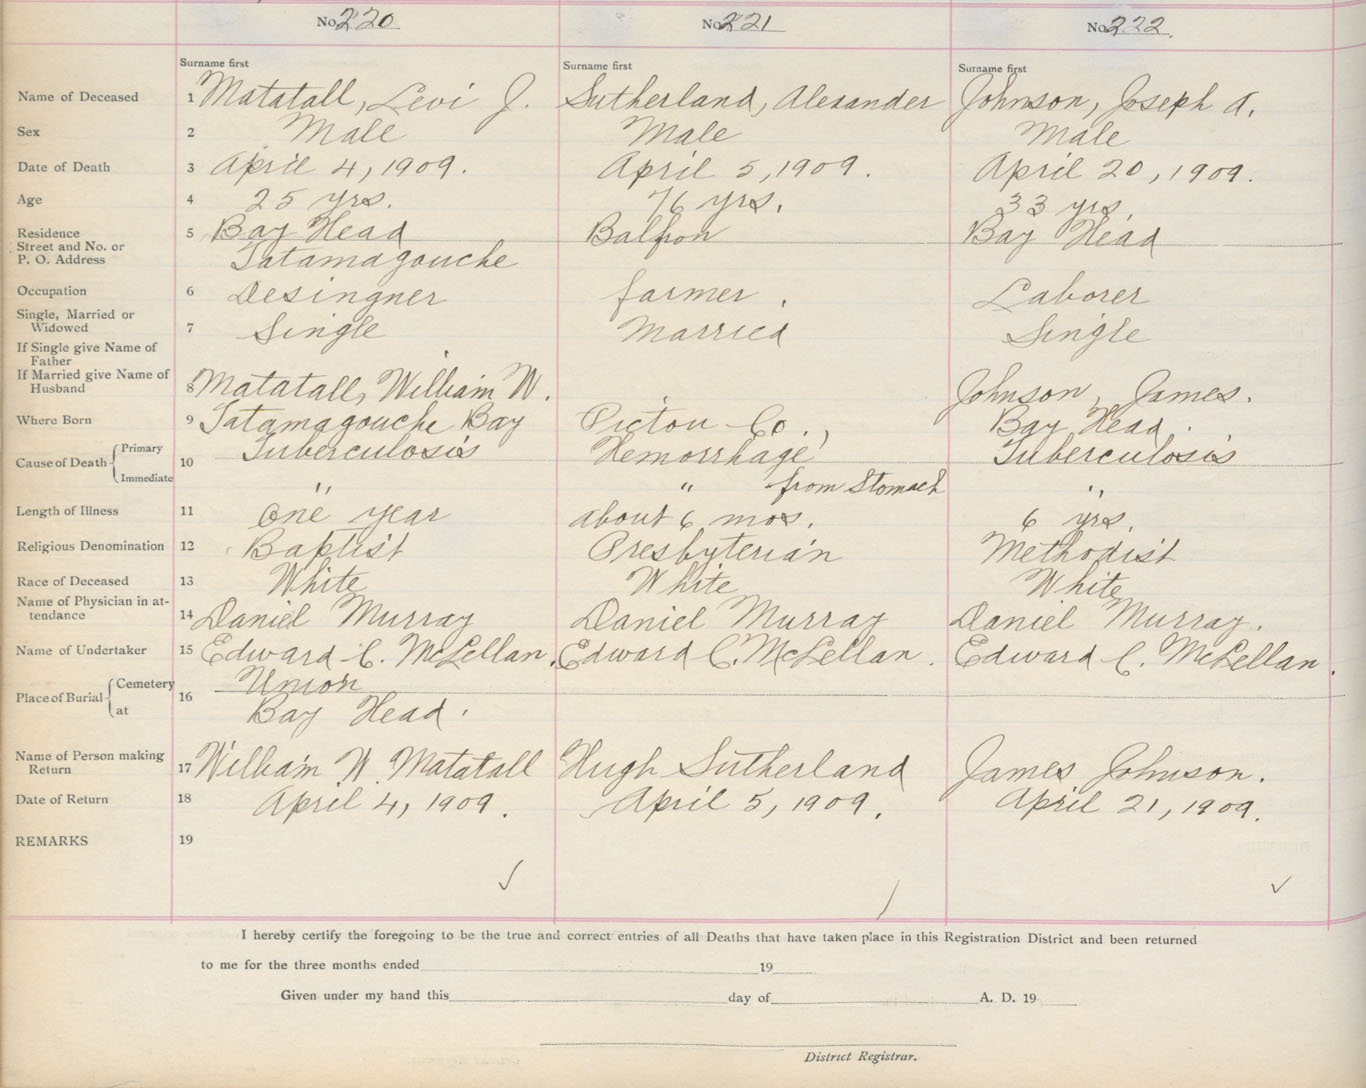 No. 220 No. 221 No. 222.
Surname first Surname first Surname first
Name of Deceased 1 Matatall, Levi J. Sutherland, Alexander Johnson, Joseph A.
Sex 2 Male Male Male
Date of Death 3 April 4, 1909. April 5, 1909. April 20, 1909.
Age 4 25 yrs. 76 yrs. 33 yrs.
Residence 5 Bay Head Balfron Bay Head
Street and No. or
P. O. Address Tatamagouche
Occupation 6 Desingner farmer. Laborer
Single, Married or
Widowed 7 Single Married Single
If Single give Name of
Father
If Married give Name of
Husband 8 Matatall, William W. Johnson, James.
Where Born 9 Tatamagouche Bay Pictou Co., Bay Head.
Cause of Death { Primary 10 Tuberculosis Hemorrhage Tuberculosis
Immediate " " from Stomach "
Length of Illness 11 One year about 6 mos. 6 yrs.
Religious Denomination 12 Baptist Presbyterian Methodist
Race of Deceased 13 White White White
Name of Physician in at-
tendance 14 Daniel Murray Daniel Murray Daniel Murray.
Name of Undertaker 15 Edward C. McLellan. Edward C. McLellan. Edward C. McLellan.
Place of Burial { Cemetery 16 Union
at Bay Head.
Name of Person making
Return 17 William W. Matatall Hugh Sutherland James Johnson.
Date of Return 18 April 4, 1909. April 5, 1909. April 21, 1909.
REMARKS 19
I hereby certify the foregoing to be the true and correct entries of all Deaths that have taken place in this Registration District and been returned
to me for the three months ended 19
Given under my hand this day of A. D. 19
District Registrar.